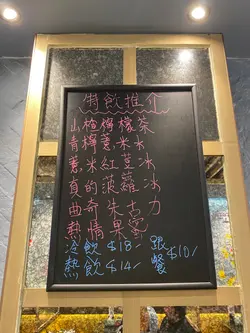 特飲推介
山楂檸檬茶
青檸薏米水
薏米紅荳冰
真的菠蘿冰
曲奇朱古力
熱情果蜜
冷飲$18- 跟
熱飲$14- 餐$10/